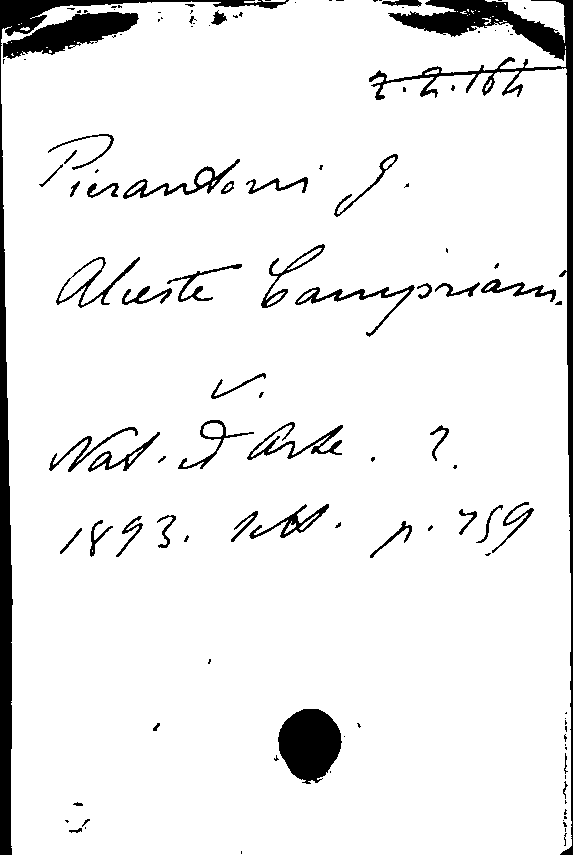 z.2.164
Pierantoni G.
Alceste Campriani.
v.
Nat. d'Arte. 2.
1893. Sett. p. 759